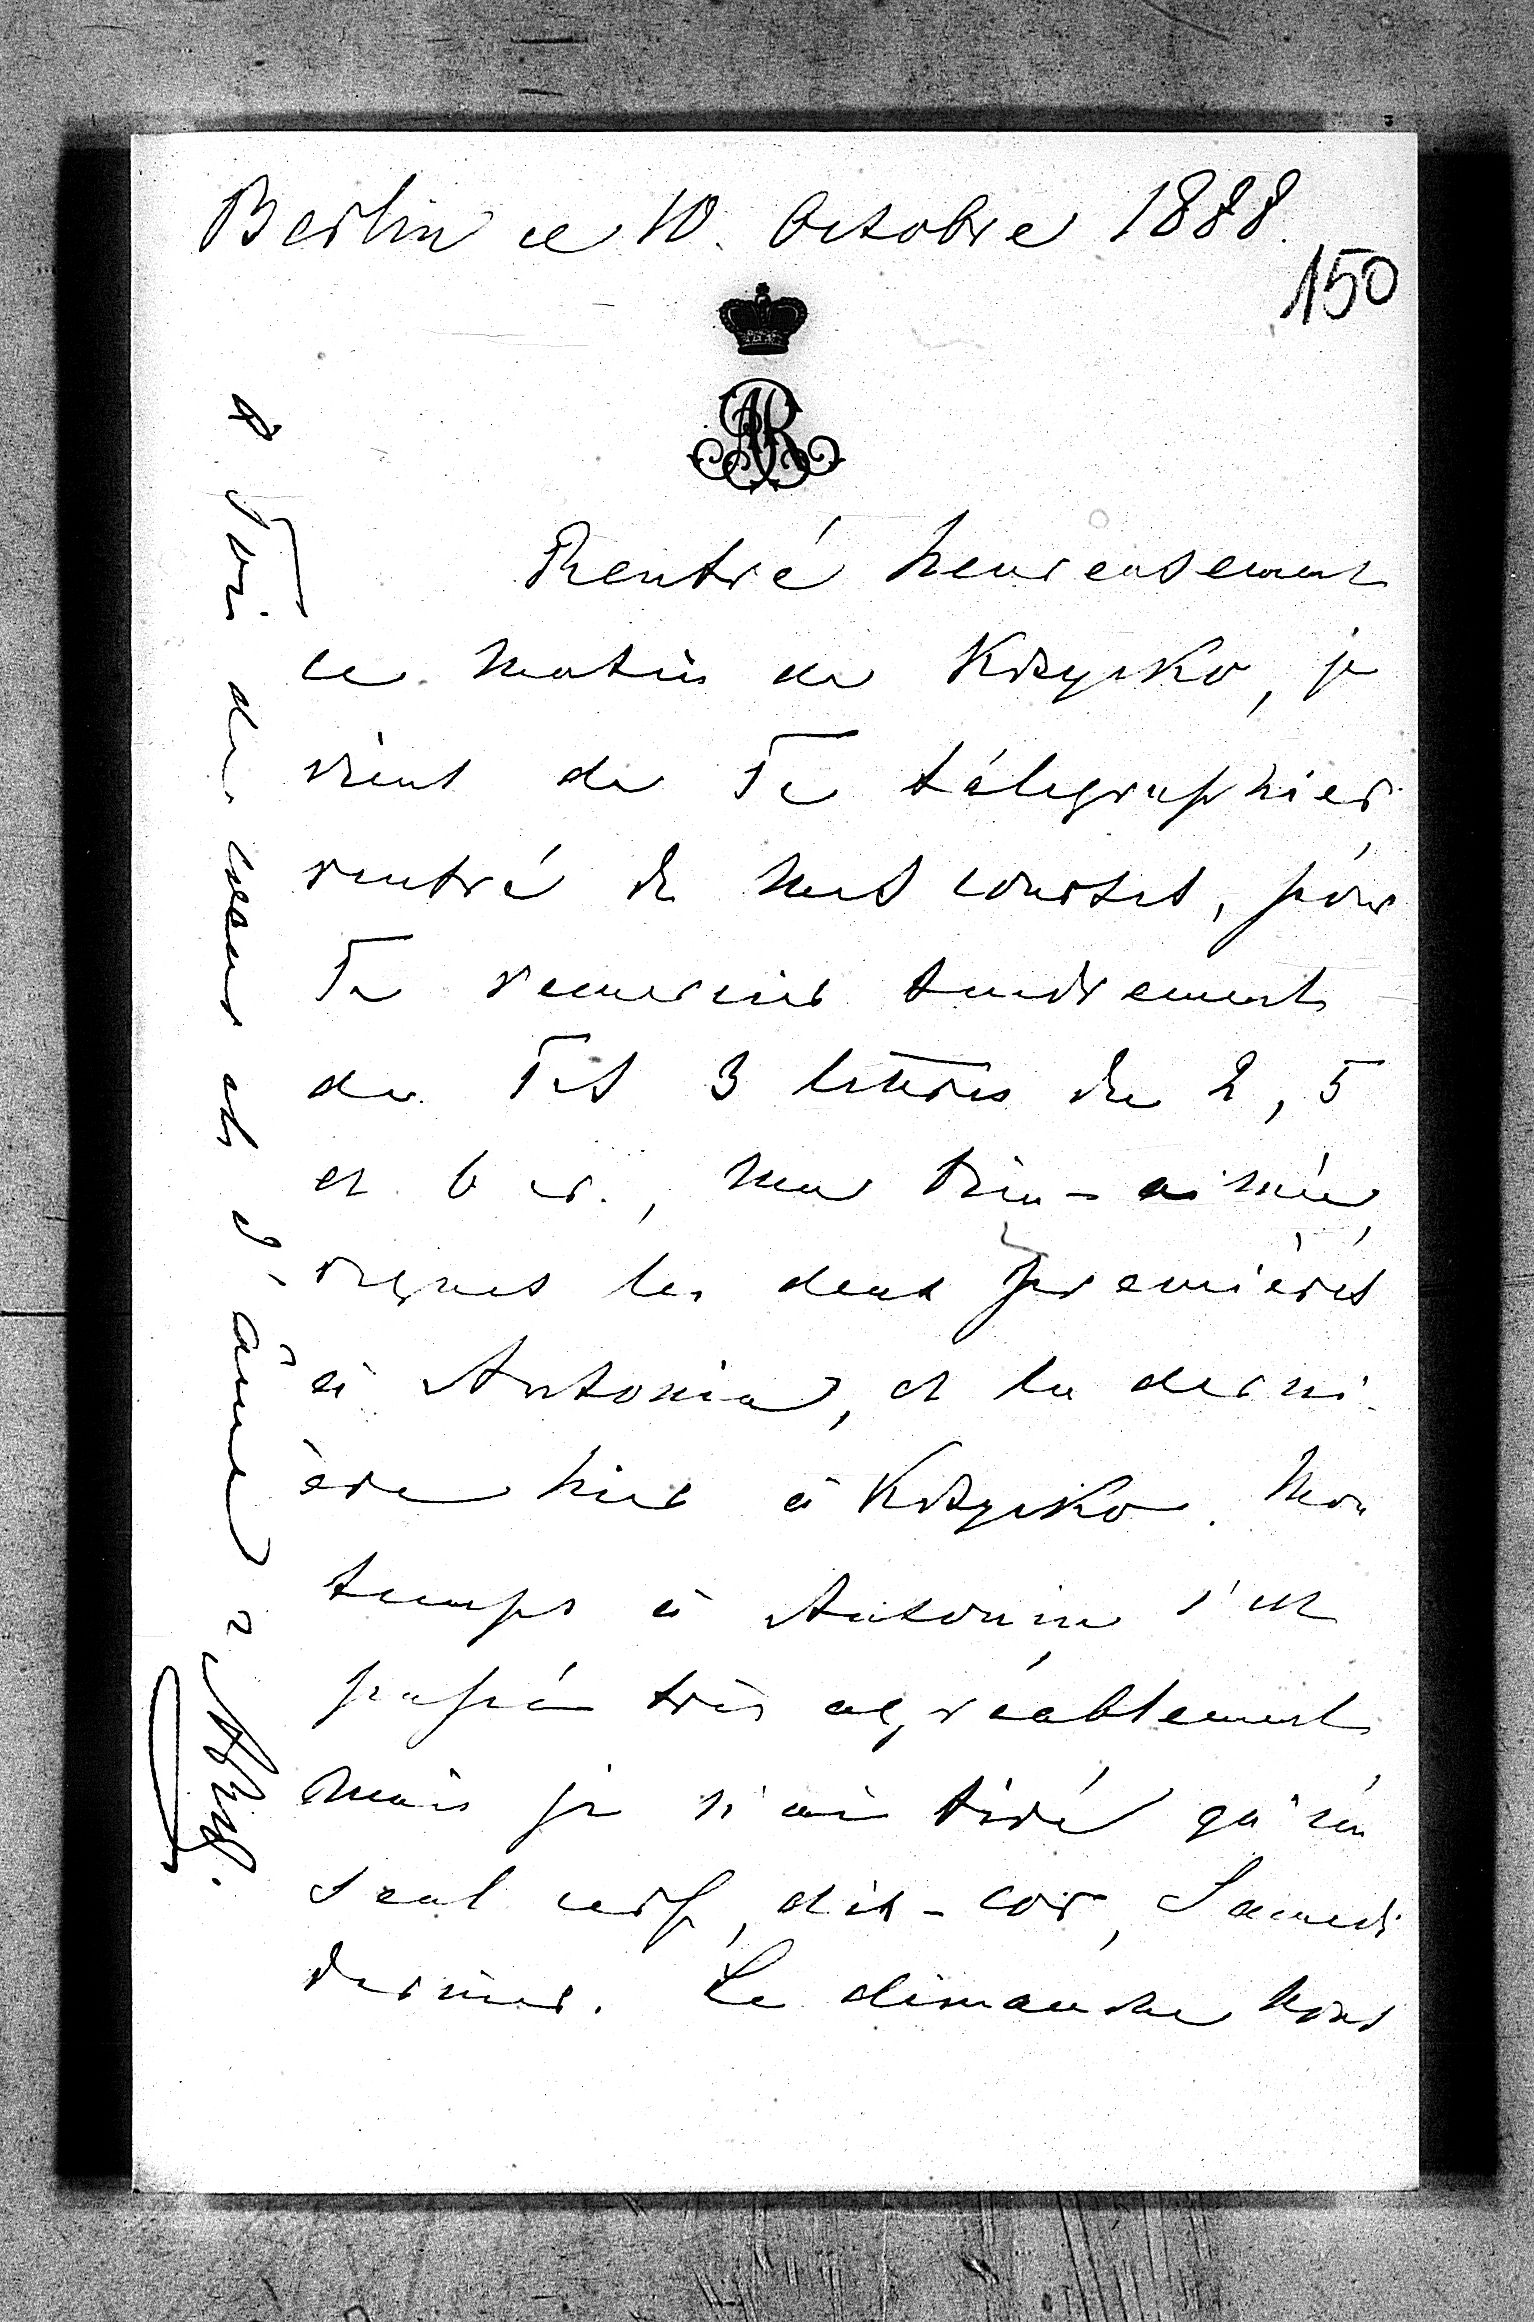 Berlin ce 10. Octobre 1888.
150
AR
Rentré heureusement
ce matin de Krzycko, je
viens de Te télégraphier
rentré de mes courses, pour
Te remercier tendrement
de Tes 3 lettres du 2, 5
et 6 cr., ma bien-aimée,
reçues les deux premières
à Antonin, et la derni-
ère hier à Krzycko. Mon
temps à Antonin s'est
passé très agréablement,
mais je n'ai tiré qu'un
seul cerf, dix-cor, Samedi
dernier. Le dimanche nous
à Toi de coeur et d'âme